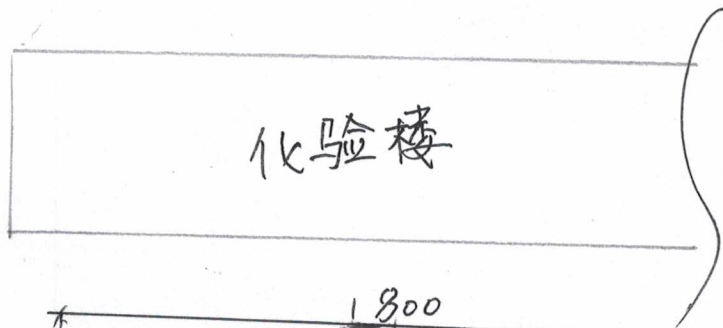 化验楼
1800